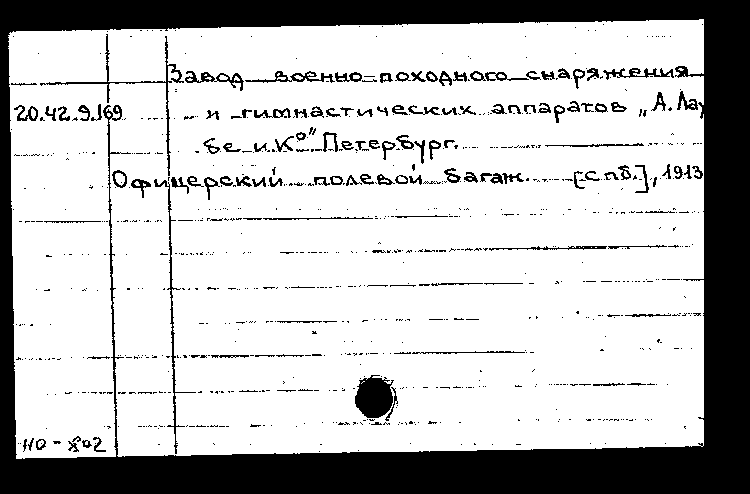 Завод военно-походного снаряжения
20.42.9.169 и гимнастических аппаратов „А. Лау
бе и Ко" Петербург.
Офицерский полевой багаж. [Спб.], 1913
НО - 802